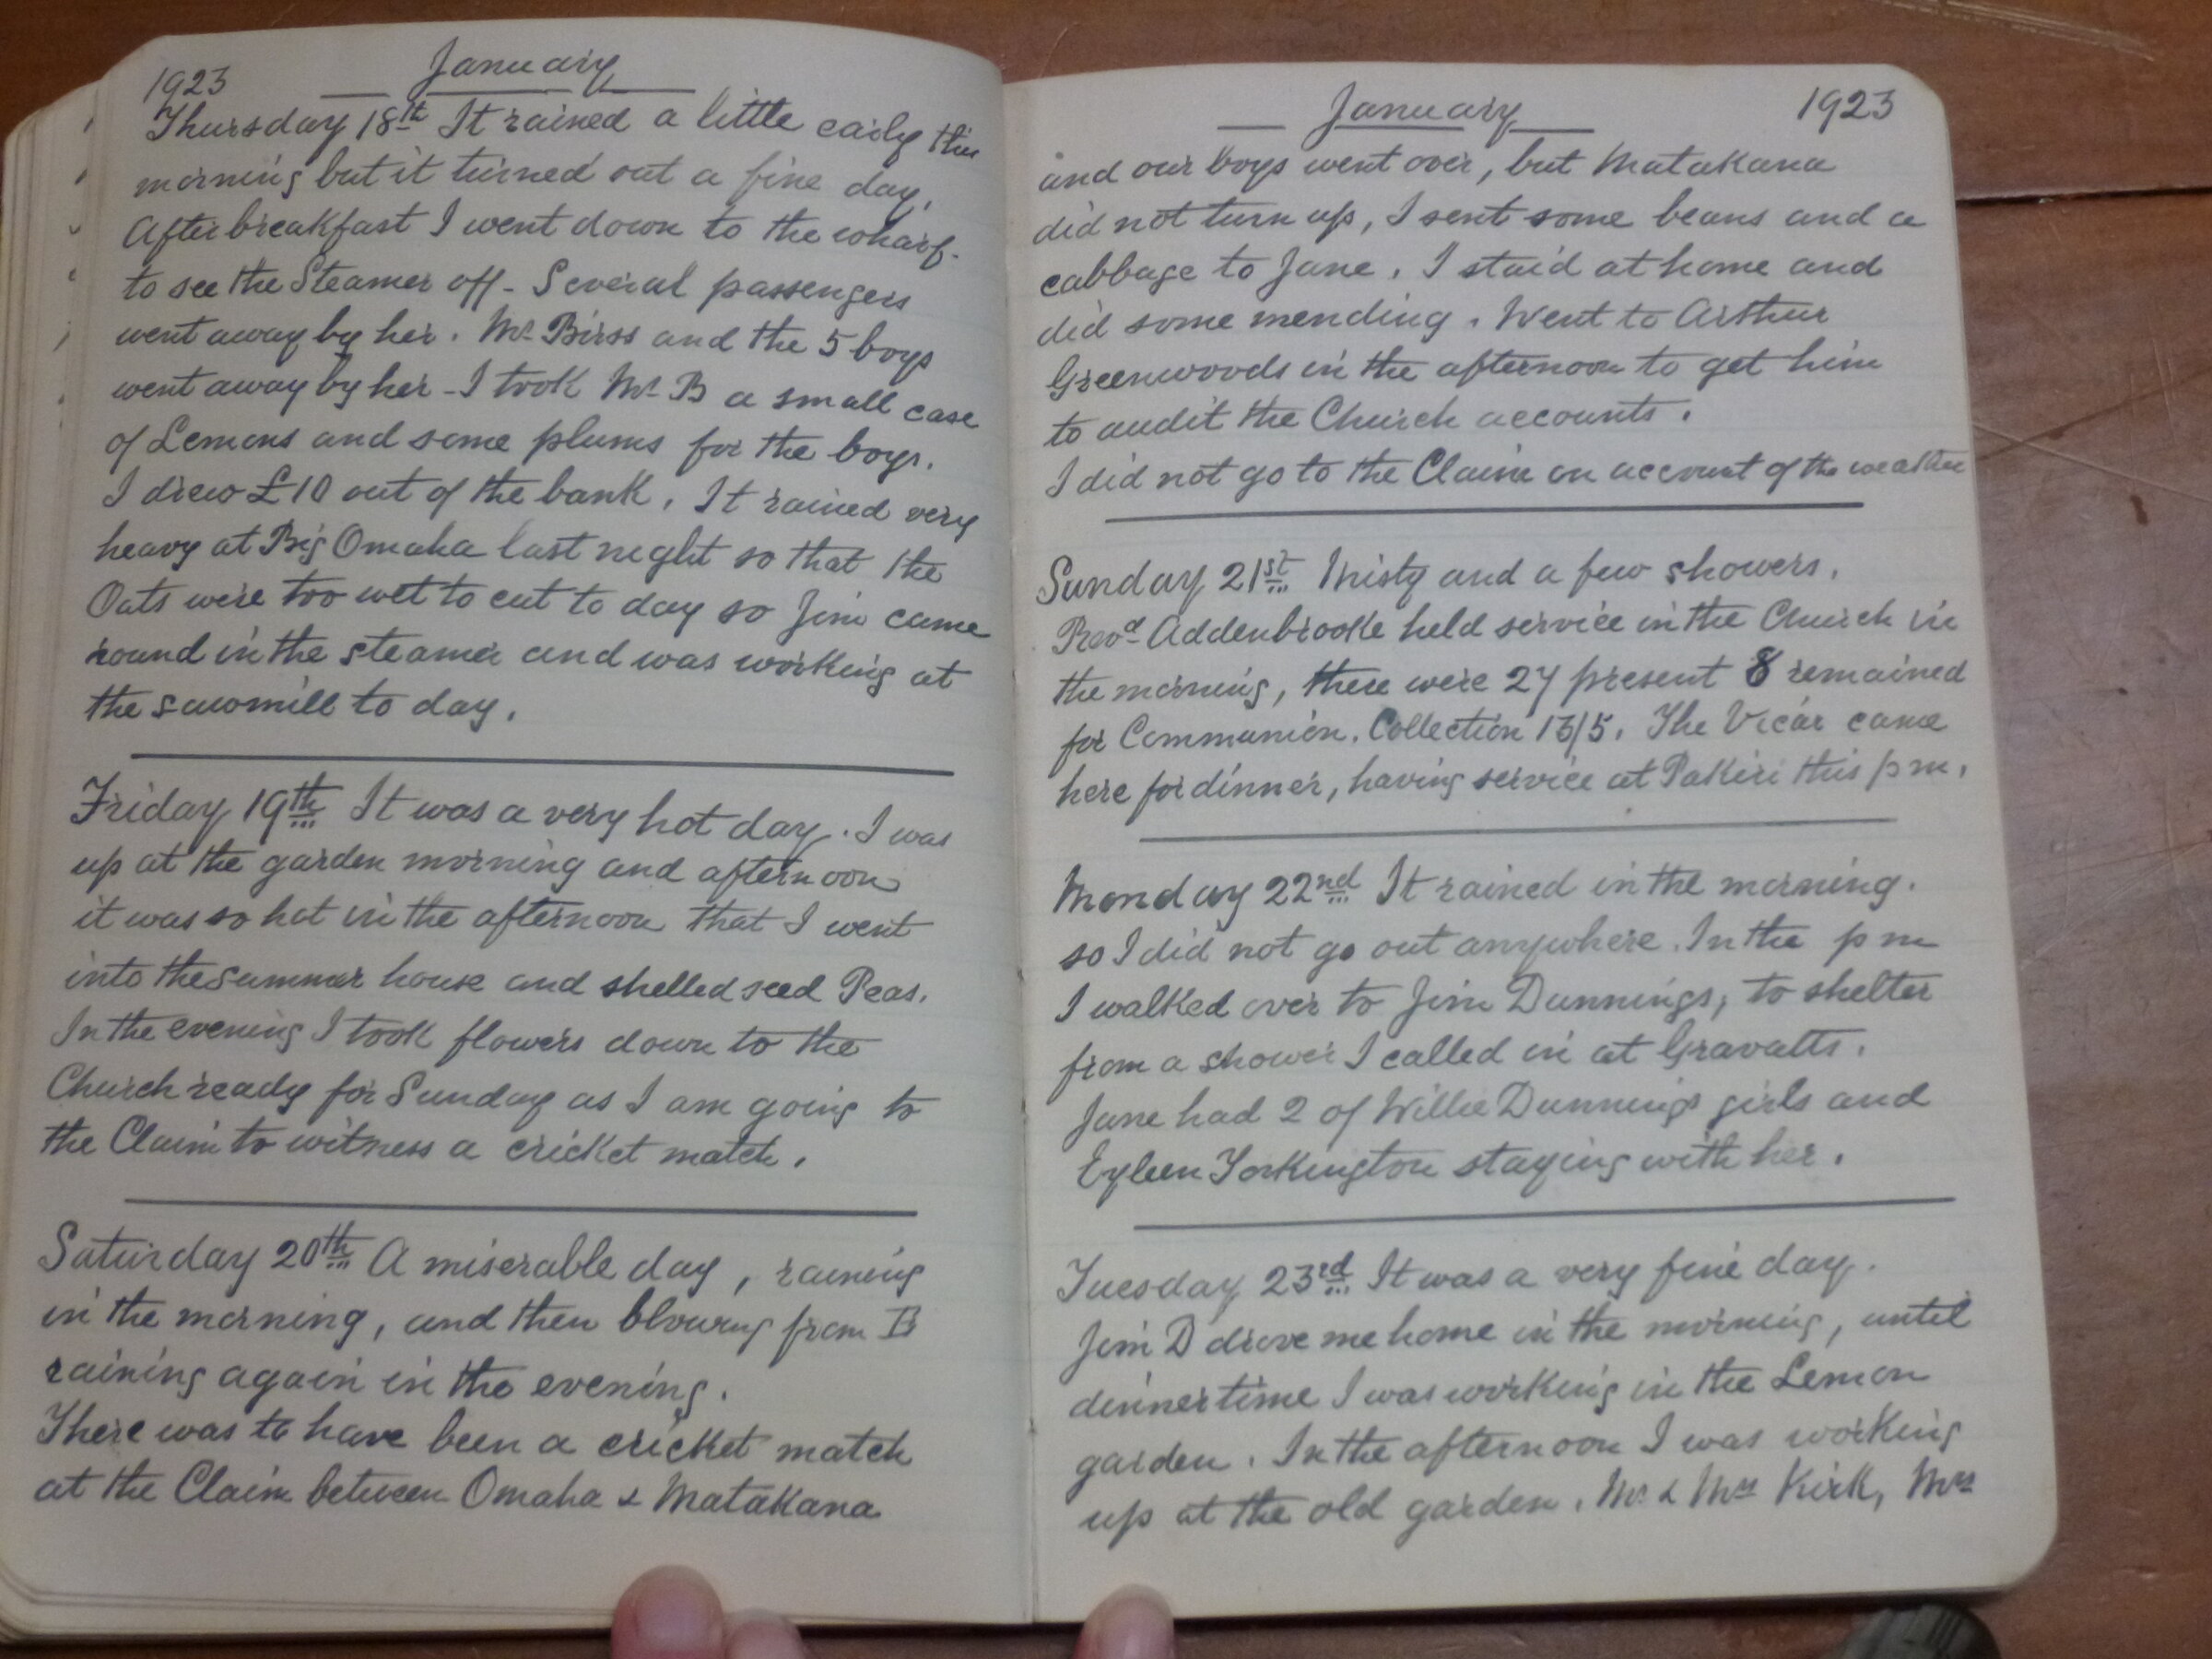 1923 January
Thursday 18th It rained a little early this
morning but it turned out a fine day.
After breakfast I went down to the wharf.
to see the Steamer off - Several passengers
went away by her. Mr Birss and the 5 boys
went away by her - I took Mr B a small case
of Lemons and some plums for the boys.
I drew £10 out of the bank. It rained very
heavy at Big Omaha last night so that the
Oats were too wet to cut to day so Jim came
round in the steamer and was working at
the sawmill to day.
Friday 19th It was a very hot day. I was
up at the garden morning and afternoon
it was so hot in the afternoon that I went
into the summar house and shelled seed Peas.
In the evening I took flowers down to the
Church ready for Sunday as I am going to
the Claim to witness a cricket match.
Saturday 20th A miserable day, raining
in the morning, and then blowing from E
raining again in the evening.
There was to have been a cricket match
at the Claim between Omaha & Matakana
January 1923
and our boys went over, but Matakana
did not turn up, I sent some beans and a
cabbage to Jane. I staid at home and
did some mending. Went to Arthur
Greenwoods in the afternoon to get him
to audit the Church accounts.
I did not go to the Claim on account of the weather
Sunday 21st Misty and a few showers.
Revd Addenbrooke held service in the Church in
the morning, there were 27 present 8 remained
for Communion. Collection 13/5. The Vicar came
here for dinner, having service at Pakiri this pm.
Monday 22nd It rained in the morning.
so I did not go out anywhere. In the pm
I walked over to Jim Dunnings, to shelter
from a shower I called in at Gravatts.
Jane had 2 of Willie Dunnings girls and
Eyleen Torkington staying with her.
Tuesday 23rd It was a very fine day.
Jim D drove me home in the morning, until
dinnertime I was working in the Lemon
garden. In the afternoon I was working
up at the old garden. Mr & Mrs Kirk, Mrs